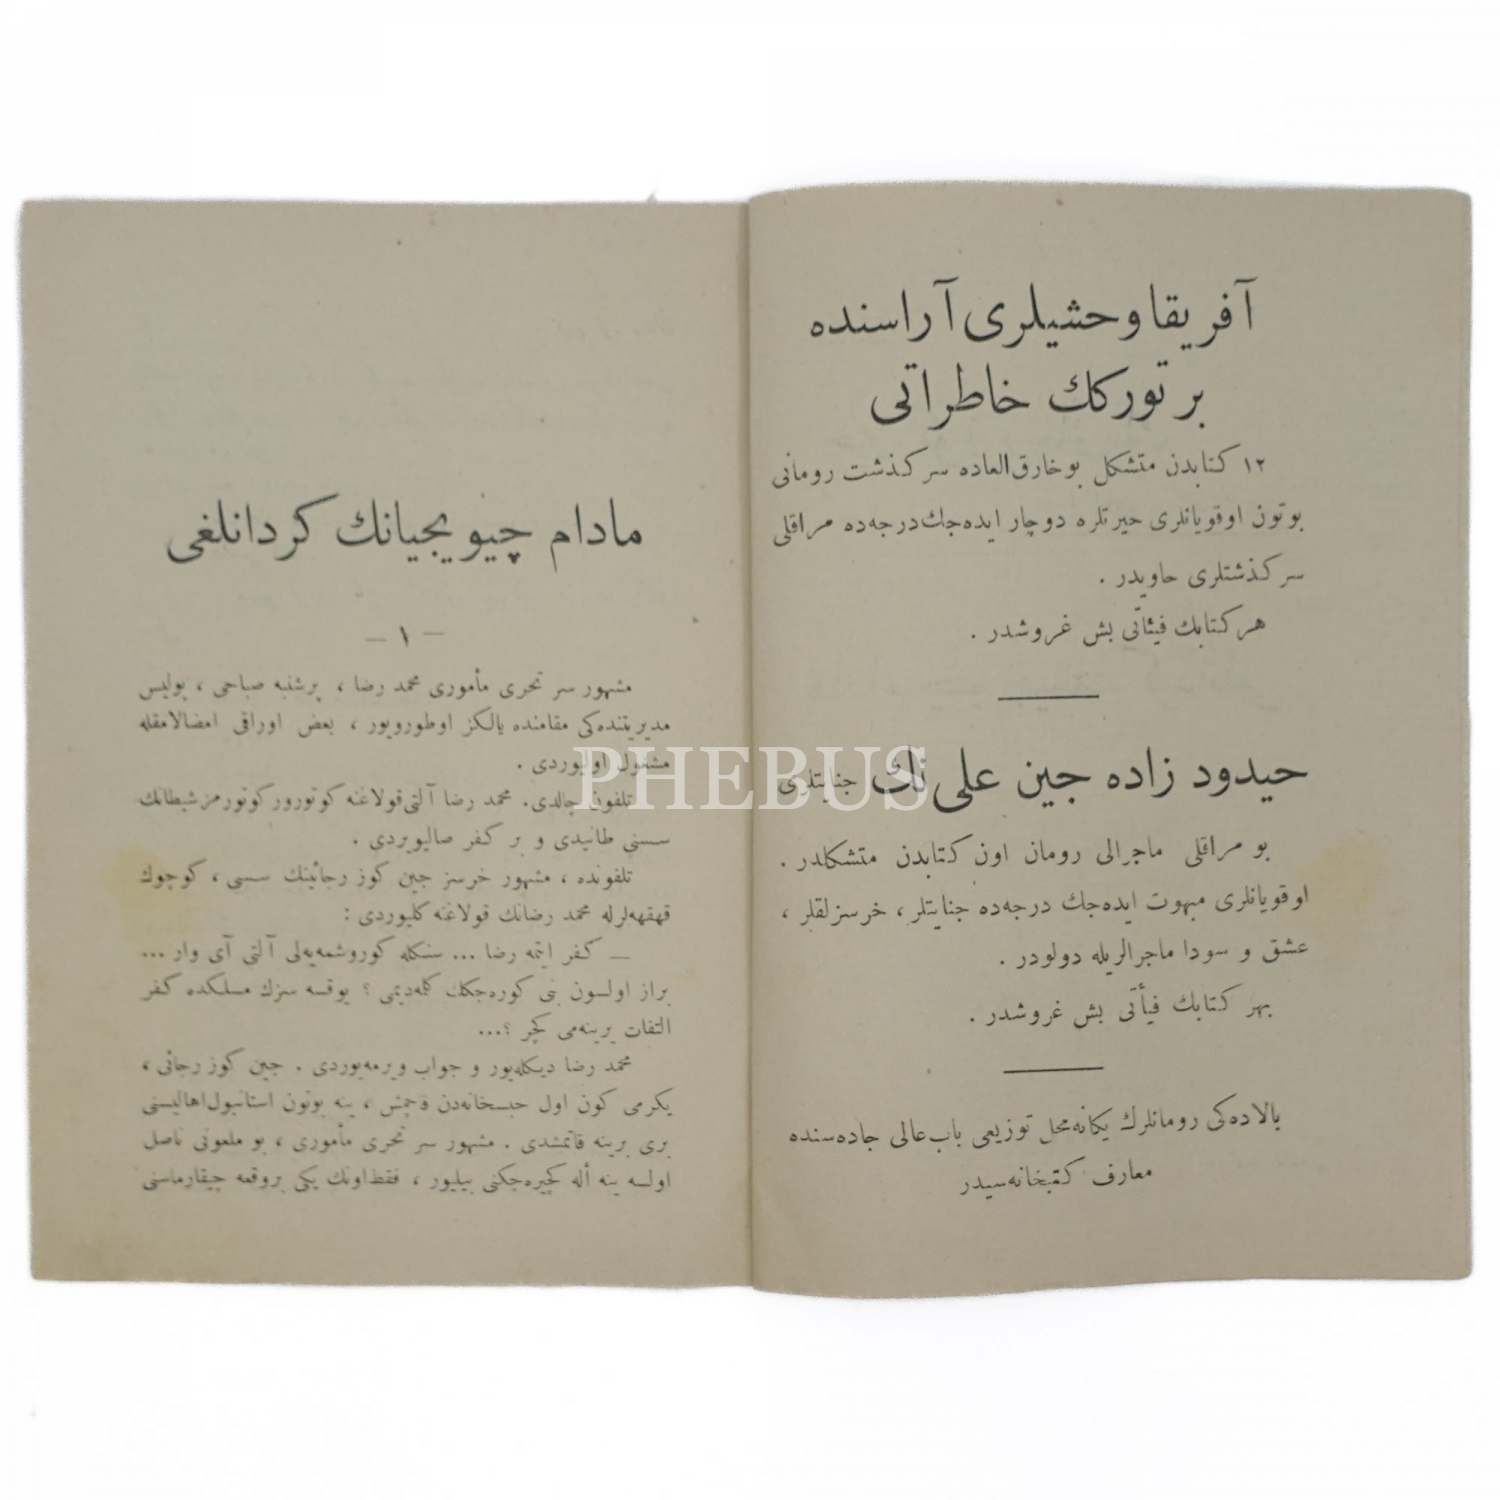 آفریقا وحشیلری آراسنده
بر تورکك خاطراتی
١٢ كتابدن متشكل بو خارق العاده سركذشت رومانی
بوتون اوقویانلری حیرتلره دوچار ایده‌جك درجه‌ده مراقلی
سركذشتلری حاویدر .
هر كتابك فیئاتی بش غروشدر .
حیدود زاده جین علی نك جنایتلری
بو مراقلی ماجرالی رومان اون كتابدن متشكلدر .
اوقویانلری مبهوت ایده‌جك درجه‌ده جنایتلر ، خرسزلقلر ،
عشق و سودا ماجرالریله دولودر .
بهر كتابك فیأتی بش غروشدر .
بالاده‌كی رومانلرك یكانه محل توزیعی باب عالی جاده‌سنده
معارف كتبخانه‌سیدر
مادام چیویجیانك كردانلغی
— ١ —
مشهور سر تحری مأموری محمد رضا ، پرشنبه صباحی ، پولیس
مدیریتنده‌كی مقامنده یالكز اوطورویور ، بعض اوراقی امضالامقله
مشغول اولیوردی .
تلفون چالدی. محمد رضا آلتی قولاغنه كوتورور كوتورمز شیطانك
سسنی طانیدی و بر كفر صالیویردی .
تلفونده ، مشهور خرسز جین كوز رجائینك سسی ، كوچوك
قهقهه‌لرله محمد رضانك قولاغنه كلیوردی :
— كفر ایتمه رضا ... سنكله كوروشمه‌یه‌لی آلتی آی وار ...
براز اولسون بنی كوره‌جكك كلمه‌دیمی ؟ یوقسه سزك مسلكده كفر
التفات یرینه‌می كچر ؟...
محمد رضا دیكله‌یور و جواب ویرمه‌یوردی . جین كوز رجائی ،
یكرمی كون اول حبسخانه‌دن قاچمش ، ینه بوتون استانبول اهالیسنی
بری برینه قاتمشدی . مشهور سر تحری مأموری ، بو ملعونی ناصل
اولسه ینه أله كچیره‌جكنی بیلیور ، فقط اونك یكی بر وقعه چیقارماسنی
PHEBUS